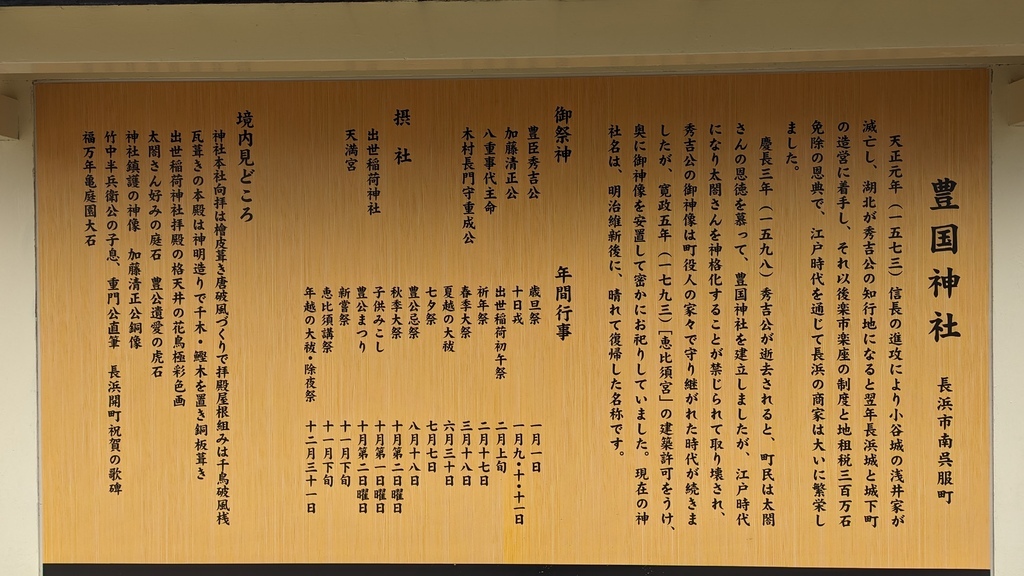 豊国神社　長浜市南呉服町
天正元年（一五七三）信長の進攻により小谷城の浅井家が
滅亡し、湖北が秀吉公の知行地になると翌年長浜城と城下町
の造営に着手し、それ以後楽市楽座の制度と地租税三百万石
免除の恩典で、江戸時代を通じて長浜の商家は大いに繁栄し
ました。
慶長三年（一五九八）秀吉公が逝去されると、町民は太閤
さんの恩徳を慕って、豊国神社を建立しましたが、江戸時代
になり太閤さんを神格化することが禁じられて取り壊され、
秀吉公の御神像は町役人の家々で守り継がれた時代が続きま
したが、寛政五年（一七九三）「恵比須宮」の建築許可をうけ、
奥に御神像を安置して密かにお祀りしていました。現在の神
社名は、明治維新後に、晴れて復帰した名称です。
御祭神
豊臣秀吉公
加藤清正公
八重事代主命
木村長門守重成公
摂社
出世稲荷神社
天満宮
年間行事
歳旦祭　一月一日
十日戎　一月九・十・十一日
出世稲荷初午祭　二月上旬
祈年祭　二月十七日
春季大祭　三月十八日
夏越の大祓　六月三十日
七夕祭　七月七日
豊公忌祭　八月十八日
秋季大祭　十月第二日曜日
子供みこし　十月第一日曜日
豊公まつり　十月第二日曜日
新嘗祭　十一月下旬
恵比須講祭　十一月下旬
年越の大祓・除夜祭　十二月三十一日
境内見どころ
神社本社向拝は檜皮葺き唐破風づくりで拝殿屋根組みは千鳥破風桟
瓦葺きの本殿は神明造りで千木・鰹木を置き銅板葺き
出世稲荷神社拝殿の格天井の花鳥極彩色画
太閤さん好みの庭石　豊公遺愛の虎石
神社鎮護の神像　加藤清正公銅像
竹中半兵衛公の子息、重門公直筆　長浜開町祝賀の歌碑
福万年亀庭園大石